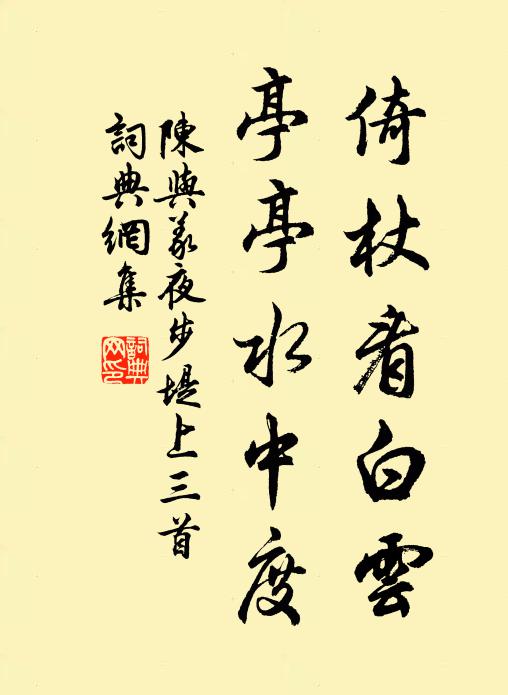 倚杖看白雲
亭亭水中度
陳與義夜步堤上三首
詞典網集
詞典網印